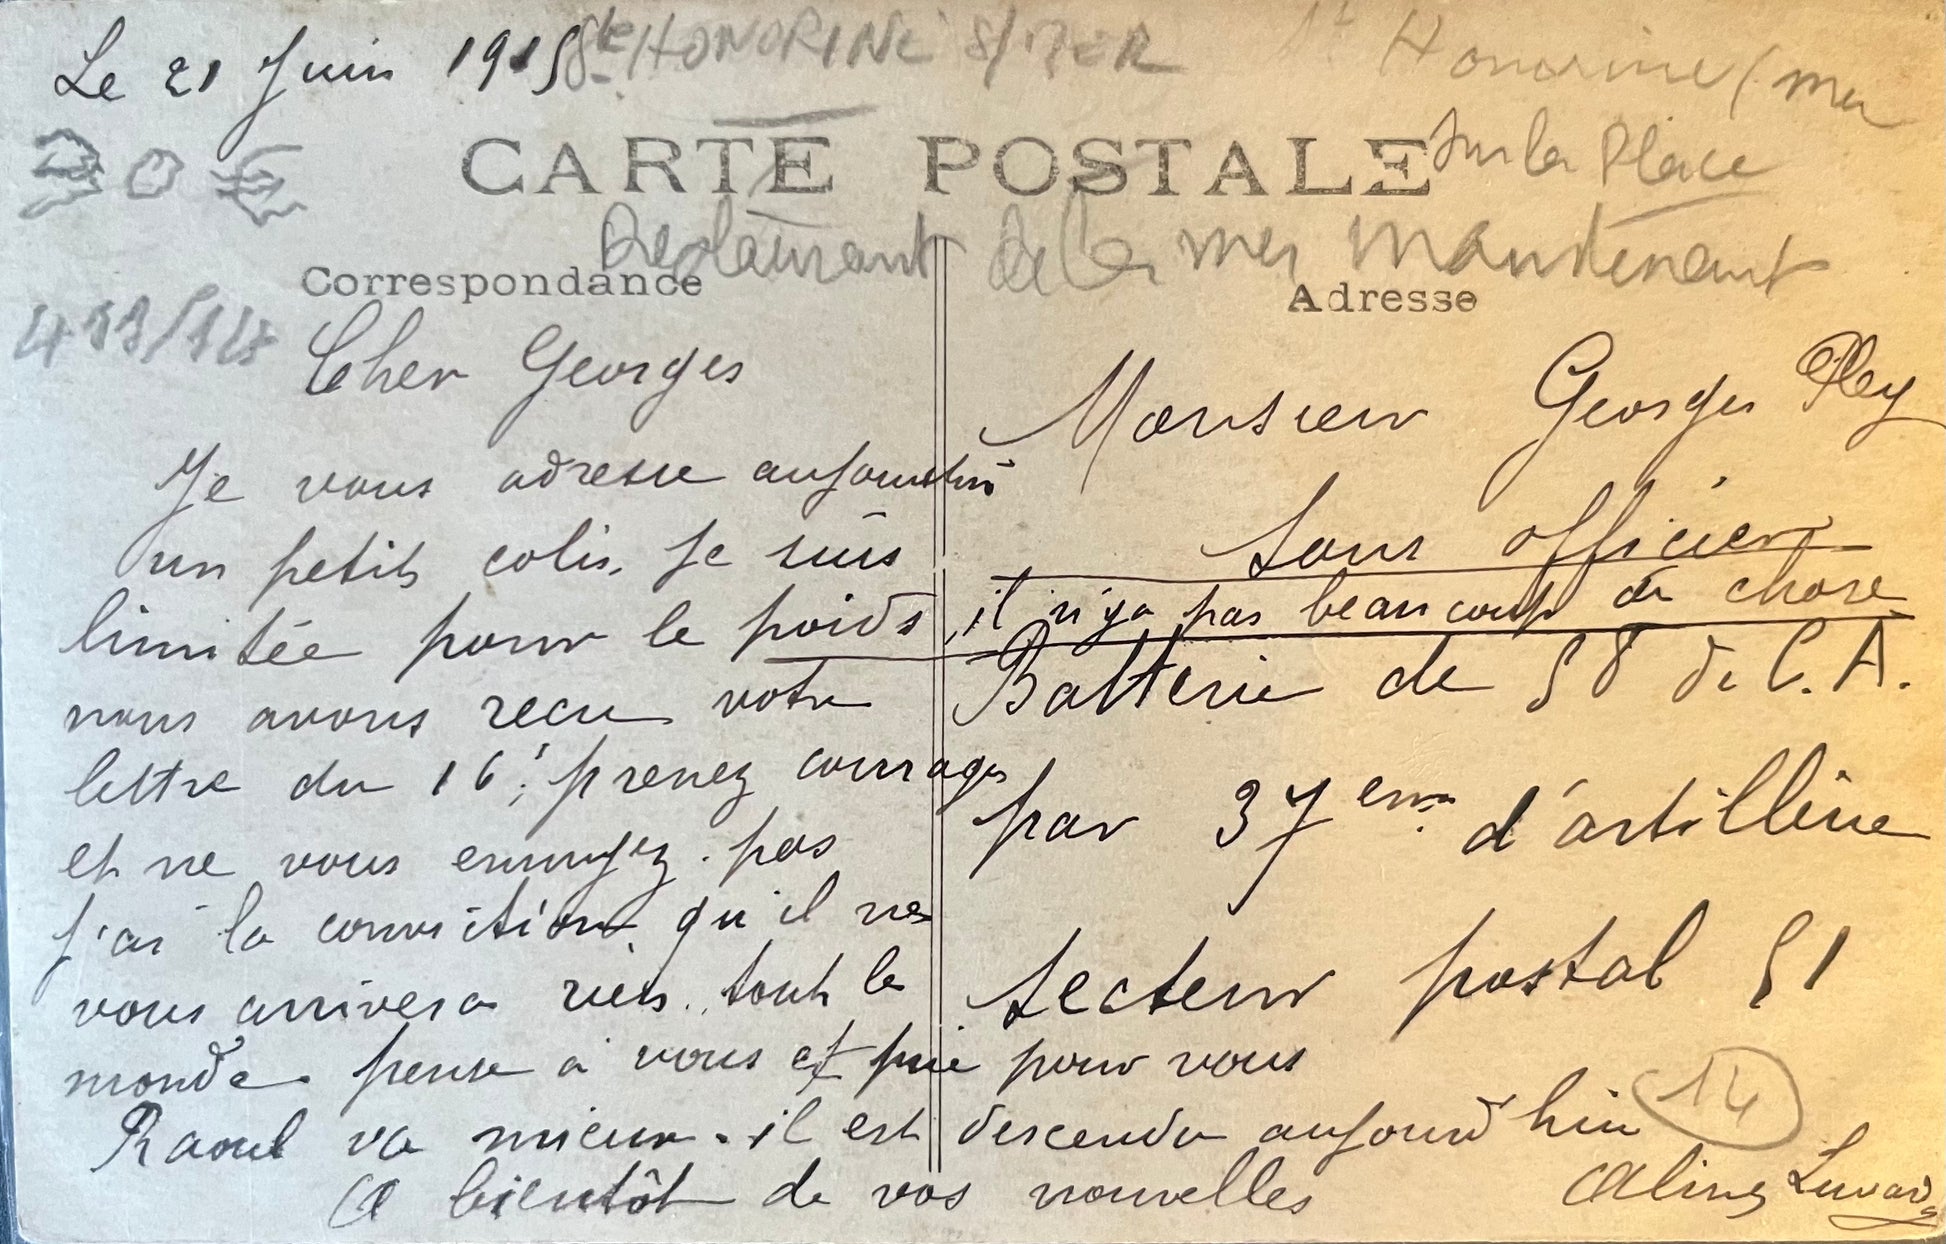 Le 21 Juin 1915
Ste HONORINE S/MER
Honorine / mer
sur la Place
30 €
CARTE POSTALE
Restaurant de la mer maintenant
Correspondance
Adresse
Cher Georges
Je vous adresse aujourd'hui
un petit colis, je suis
limitée pour le poids, il n'y a pas beaucoup de chose
nous avons recu votre
lettre du 16; prenez courage
et ne vous ennuyez pas
j'ai la conviction qu'il ne
vous arrivera rien. tout le
monde pense à vous et prie pour vous
Raoul va mieux. il est descendu aujourd'hui
A bientôt de vos nouvelles
Monsieur Georges
Sous officier
Batterie de 58 de C. A.
par 37em d'artillerie
Secteur postal 51
14
Aline